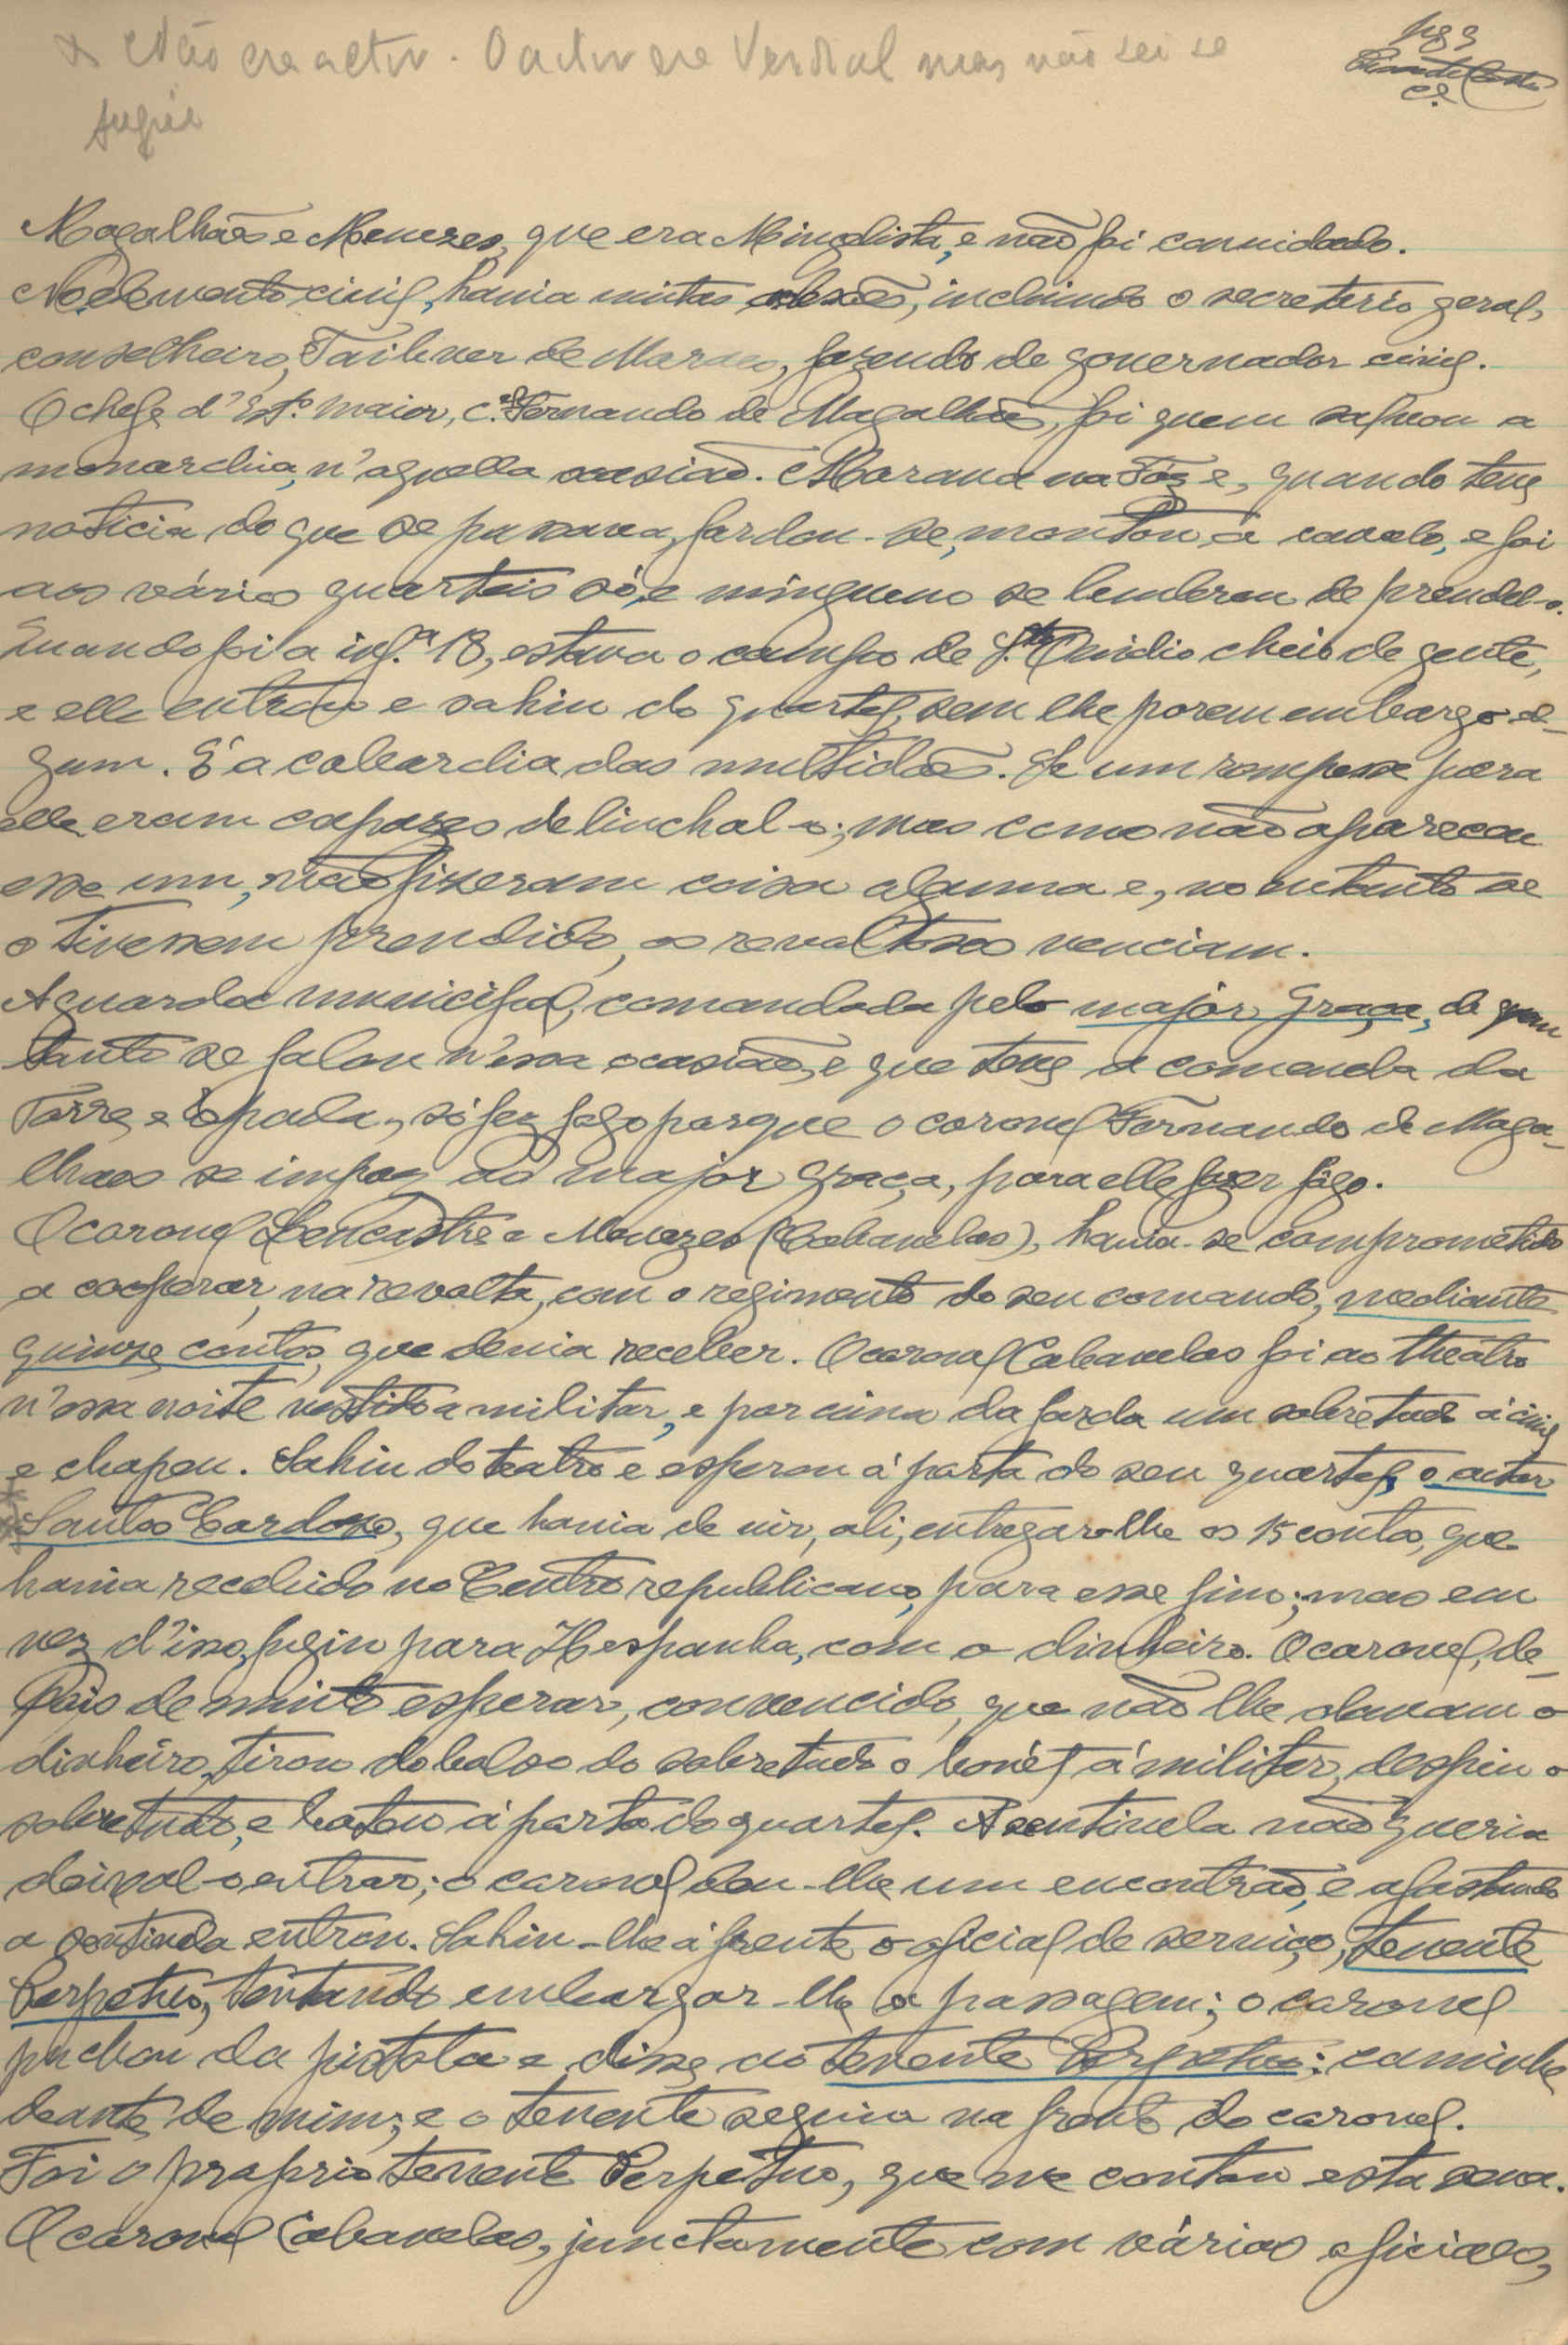 x Não era actor. O actor era Verdial mas não sei se
fugiu
pg 3
Magalhães e Menezes, que era Miguelista, e não foi convidado.
No elemento civil, havia muitas adesões, incluindo o secretario geral,
conselheiro, Taibner de Moraes, fazendo de governador civil.
O chefe d'Est.º maior, c.el Fernando de Magalhães, foi quem salvou a
monarchia, n'aquella ocasião. Morava na Fóz e, quando teve
noticia do que se passava, fardou-se, montou a cavalo, e foi
aos vários quarteis só, e ninguem se lembrou de prendel-o.
Quando foi a inf.ª 18, estava o campo de St.º Ovidio cheio de gente,
e elle entrou e sahiu do quartel, sem lhe porem embargo al-
gum. É a cobardia das multidões. Se um rompesse para
elle, eram capazes de linchal-o; mas como não apareceu
esse um, não fizeram coisa alguma e, no entanto se
o tivessem prendido, os revoltosos venciam.
A guarda municipal, comandada pelo major Graça, de quem
tanto se falou n'essa ocasião, e que teve a comenda da
Torre e Espada, só fez fogo porque o coronel Fernando de Maga-
lhaes se impoz ao major Graça, para elle fazer fogo.
O coronel Lencastre e Menezes (Cabanelas), havia-se comprometido
a cooperar, na revolta, com o regimento do seu comando, mediante
quinze contos, que devia receber. O coronel Cabanelas foi ao theatro
n'essa noite vestido a militar, e por cima da farda um sobretudo á civil
e chapeu. Sahiu do teatro e esperou á porta do seu quartel, o actor
x Santos Cardoso, que havia de vir, ali, entregar-lhe os 15 contos, que
havia recebido no Centro republicano, para esse fim; mas em
vez d'isso, fugiu para Hespanha, com o dinheiro. O coronel, de-
pois de muito esperar, convencido, que não lhe davam o
dinheiro, tirou do bolso do sobretudo o bonét á militar, despiu o
sobretudo, e bateu á porta do quartel. A sentinela não queria
deixal-o entrar; o coronel deu-lhe um encontrão, e afastando
a sentinela entrou. Sahiu-lhe á frente o oficial de serviço, tenente
Perpetuo, tentando embargar-lhe a passagem; o coronel
puchou da pistola e disse ao tenente Perpetuo: caminhe
deante de mim; e o tenente seguiu na frente do coronel.
Foi o proprio tenente Perpetuo, que me contou esta scena.
O coronel Cabanelas, junctamente com vários oficiaes,